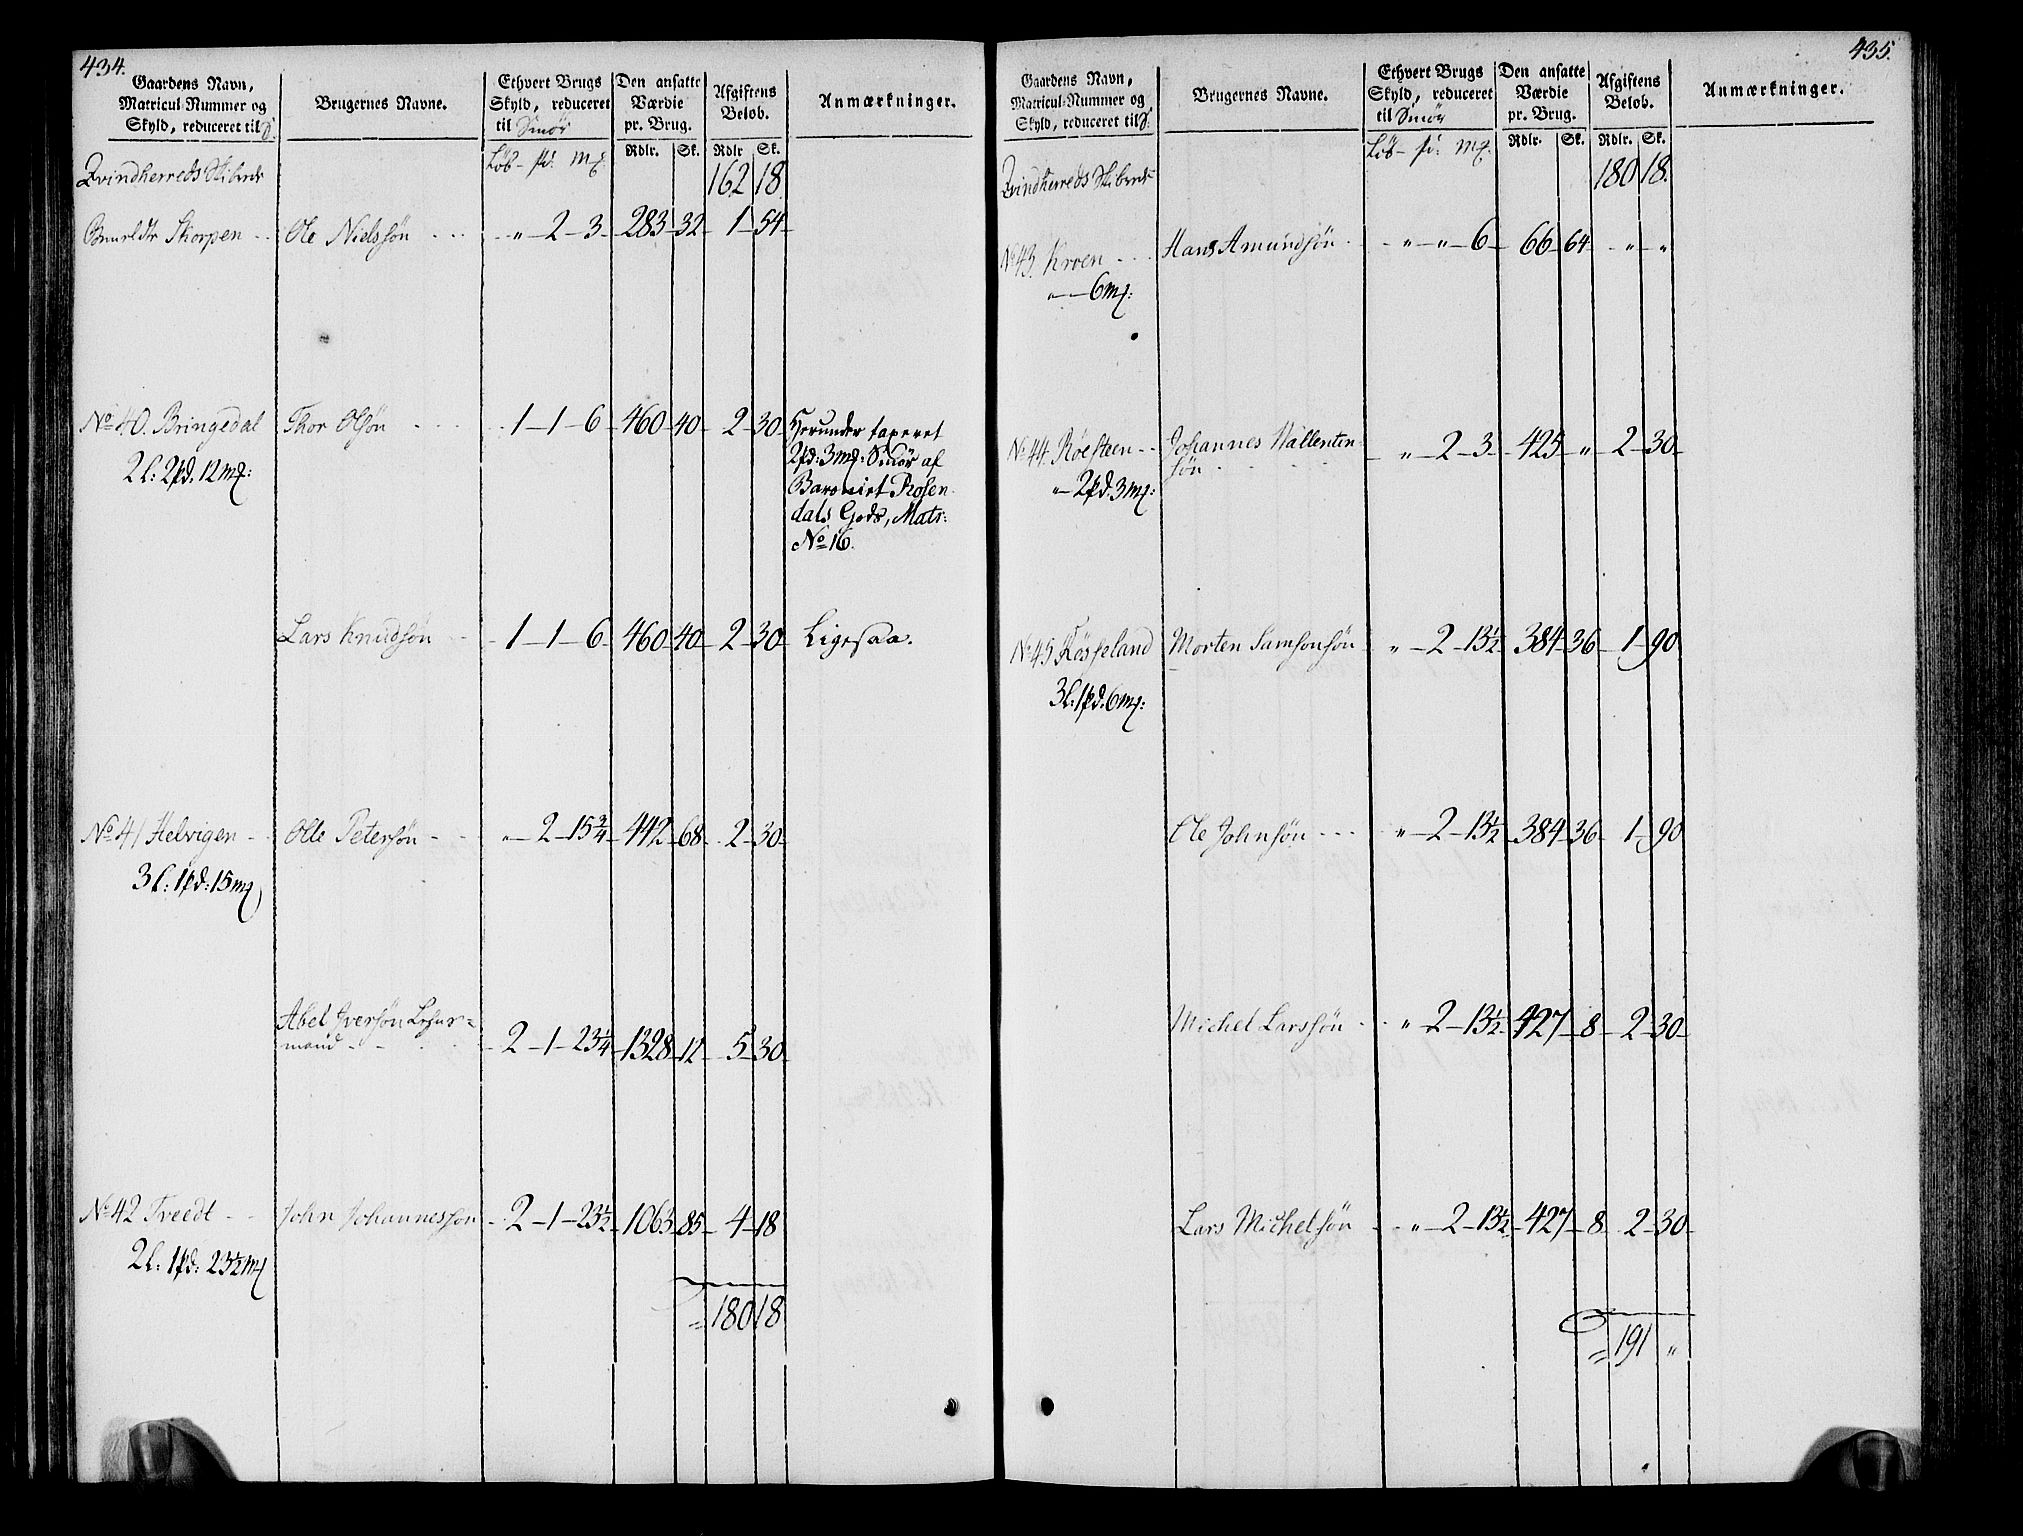 434.
Gaardens Navn, Matricul-Nummer og Skyld, reduceret til
Brugernes Navne.
Ethvert Brugs Skyld, reduceret til Smör
Den ansatte Værdie pr. Brug.
Afgiftens Beløb.
Anmærkninger.
Løb - pd: mk.
Rdlr. Sk. Rdlr Sk.
Qvindherreds Skibrede 162 18.
Skorpen - - Ole Nielssön - - - - „ - 2 - 3 - 283 - 32 - 1 - 54 -
No 40. Bringedal Thor Olsön - - - - - 1 - 1 - 6 - 460 - 40 - 2 - 30 - Herunder taxeret
2l: 2pd. 12mk: 2pd: 3mk: Smör af
Baroniet Rosen-
dals Gods, Matr:
No 16.
Lars Knudsön - - - 1 - 1 - 6 - 460 - 40 - 2 - 30 - Ligesaa.
No 41 Helvigen - Olle Petersön - - - „ - 2 - 15 3/4 - 442 - 68 - 2 - 30 -
3l: 1pd: 15mk
Abel Iversön
mand - - - - - 2 - 1 - 23 1/4 - 1328 - 12 - 5 - 30 -
No 42 Treedt - - John Johannessön - 2 - 1 - 23 1/2 - 1063 - 85 - 4 - 18
2l: 1pd: 23 1/2 mk
= 180 18
435.
Gaardens Navn, Matricul-Nummer og Skyld, reduceret til
Brugernes Navne.
Ethvert Brugs Skyld, reduceret til Smör
Den ansatte Værdie pr. Brug.
Afgiftens Beløb.
Anmærkninger.
Løb - pd: mk.
Rdlr. Sk. Rdlr. Sk.
Qvindherreds Skibrede 180 18.
No 43. Kroen - - - Hans Amundsön - - „ - „ - 6 - 66 - 64 - „ - „
„ - - 6mk:
No 44. Röesteen - - Johannes Wallentin-
sön - - - - - „ - 2 - 3 - 425 - „ - 2 - 30 -
„ - 2pd. 3mk:
No 45 Morten Samsonsön - „ - 2 - 13 1/2 - 384 - 36 - 1 - 90
3l: 1pd. 6mk:
Ole Johnsön - - - „ - 2 - 13 1/2 - 384 - 36 - 1 - 90
Michel Larssön - - - „ - 2 - 13 1/2 - 427 - 8 - 2 - 30 -
Lars Michelsön - - „ - 2 - 13 1/2 - 427 - 8 - 2 - 30 -
= 191 „